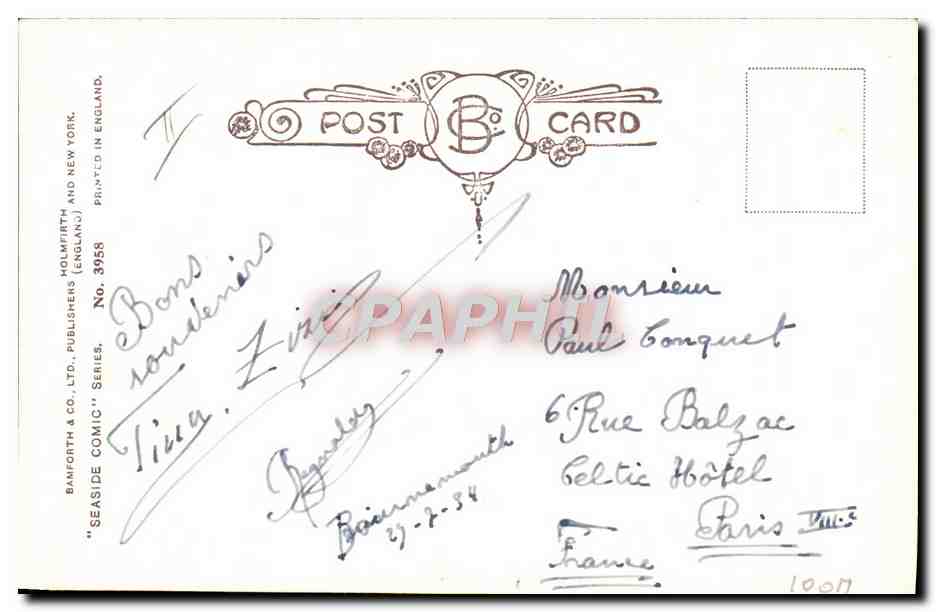 POST CARD
BCo
II
BAMFORTH & CO., LTD., PUBLISHERS HOLMFIRTH (ENGLAND) AND NEW YORK.
"SEASIDE COMIC" SERIES. No. 3958 PRINTED IN ENGLAND.
Bons
souvenirs
Tina. Zizi
Bournemouth
Monsieur
Paul Conquet
6 Rue Balzac
Celtic Hôtel
Paris VIII.e
France
CPAPHIL
100M